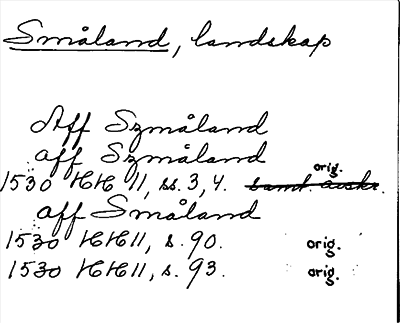 Småland, landskap
Aff Szmåland
aff Szmåland
1530 HH 11, ss. 3, 4. samt. avskr. orig.
aff Småland
1530 HH 11, s. 90. orig.
1530 HH 11, s. 93. orig.